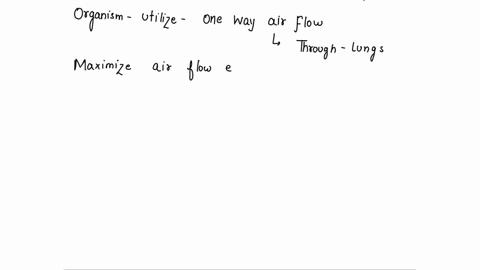 Organism - utilize - one way air flow
↳ Through - lungs
Maximize air flow e